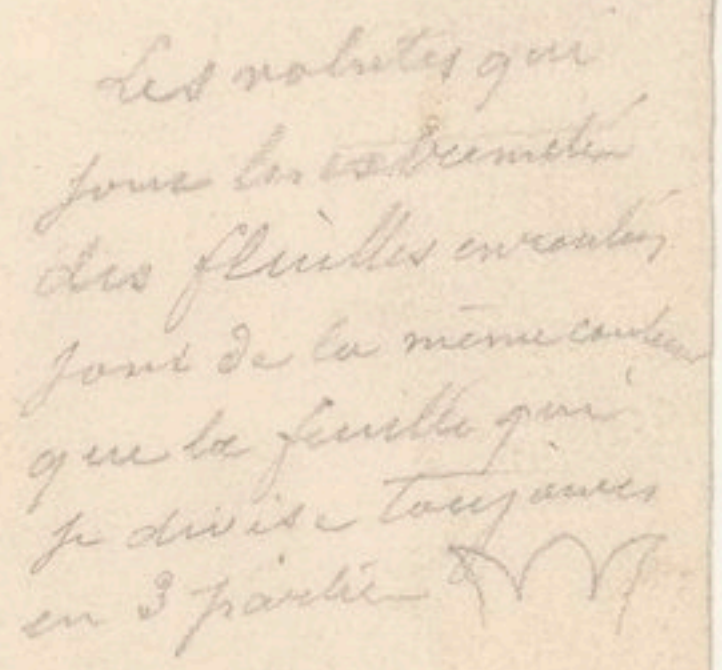 Les volutes qui
sont les extremités
des feuilles enroulées
sont de la même couleur
que la feuille qui
se divise toujours
en 3 partie